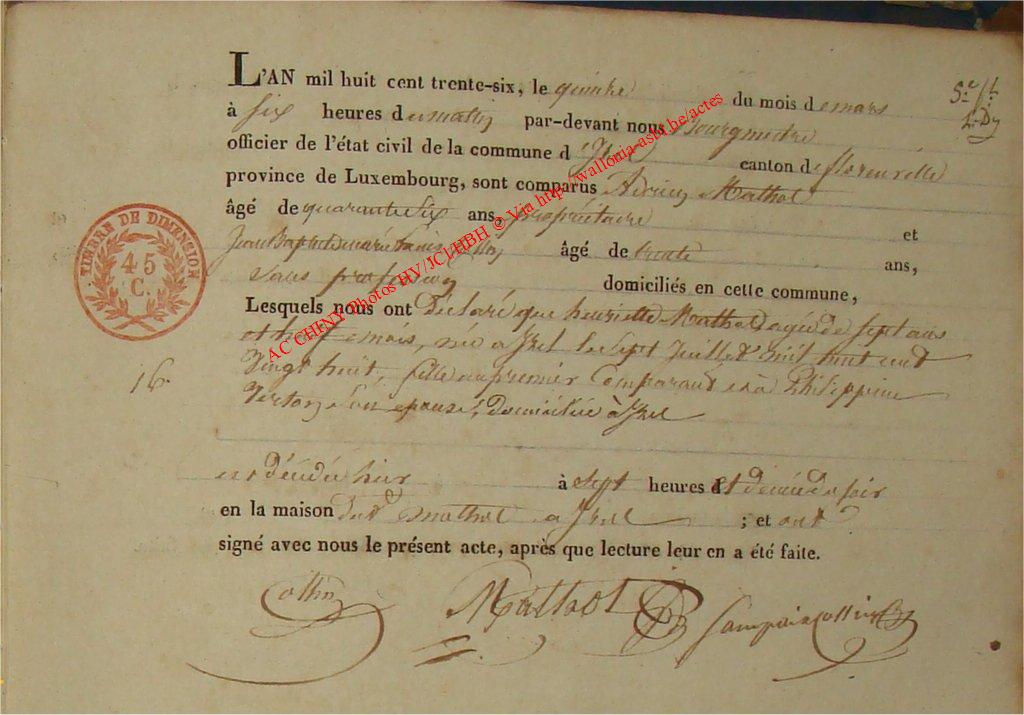 L'AN mil huit cent trente-six, le quinze du mois de mars
à six heures du matin par-devant nous Bourgmestre
officier de l'état civil de la commune d'Izel canton de florenville
province de Luxembourg, sont comparus Adrien Mathot
âgé de quarante six ans, propriétaire et
Jean Baptiste marie Collin âgé de trente ans,
sans profession domiciliés en cette commune,
Lesquels nous ont Déclaré que henriette Mathot agée de sept ans
et huit mois, née a Izel le sept Juillet mil huit cent
Vingt huit, fille du premier Comparant et à Philippine
son épouse, domiciliée à Izel
est décédée hier à sept heures et demie du soir
en la maison dudt mathot a Izel ; et ont
signé avec nous le présent acte, après que lecture leur en a été faite.
Collin Mathot
TIMBRE DE DIMENSION
45
C.
16.
AC CHENY Photos HV/JCJ/HBH © Via http://wallonia-asbl.be/actes